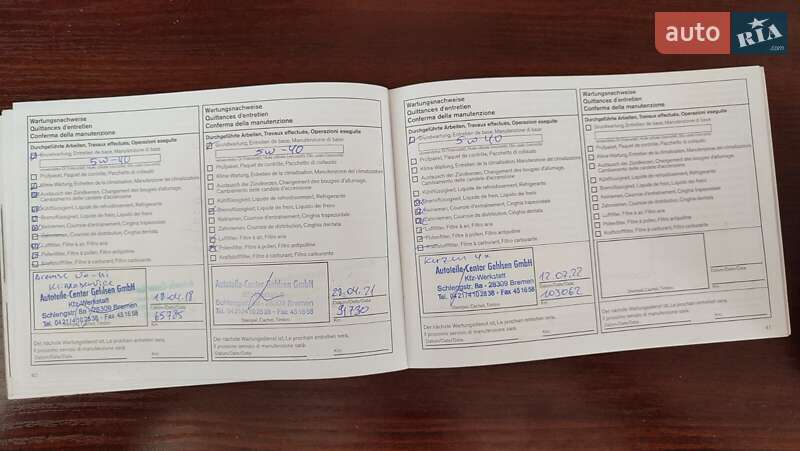 auto
RIA
.com
Wartungsnachweise
Quittances d'entretien
Conferma della manutenzione
Durchgeführte Arbeiten, Travaux effectués, Operazioni eseguite
Grundwartung, Entretien de base, Manutenzione di base
5W-40
Prüfpaket, Paquet de contrôle, Pacchetto di collaudo
Klima-Wartung, Entretien de la climatisation, Manutenzione del climatizzatore
Austausch der Zündkerzen, Changement des bougies d'allumage,
Cambiamento delle candele d'accensione
Kühlflüssigkeit, Liquide de refroidissement, Refrigerante
Bremsflüssigkeit, Liquide de frein, Liquido dei freni
Keilriemen, Courroie d'entraînement, Cinghia trapezoidale
Zahnriemen, Courroie de distribution, Cinghia dentata
Luftfilter, Filtre à air, Filtro aria
Pollenfilter, Filtre à pollen, Filtro antipolline
Kraftstofffilter, Filtre à carburant, Filtro carburante
Autoteile-Center Gehlsen GmbH
Kfz-Werkstatt
Schleggstr. 8a - 28309 Bremen
Tel. 04 21/4 10 28 38 - Fax 43 16 58
18.04.18
Datum/Date/Data
65785
Km
Der nächste Wartungsdienst ist, Le prochain entretien sera,
Il prossimo servizio di manutenzione sarà:
Datum/Date/Data
Km
40
Wartungsnachweise
Quittances d'entretien
Conferma della manutenzione
Durchgeführte Arbeiten, Travaux effectués, Operazioni eseguite
Grundwartung, Entretien de base, Manutenzione di base
5W-40
Prüfpaket, Paquet de contrôle, Pacchetto di collaudo
Klima-Wartung, Entretien de la climatisation, Manutenzione del climatizzatore
Austausch der Zündkerzen, Changement des bougies d'allumage,
Cambiamento delle candele d'accensione
Kühlflüssigkeit, Liquide de refroidissement, Refrigerante
Bremsflüssigkeit, Liquide de frein, Liquido dei freni
Keilriemen, Courroie d'entraînement, Cinghia trapezoidale
Zahnriemen, Courroie de distribution, Cinghia dentata
Luftfilter, Filtre à air, Filtro aria
Pollenfilter, Filtre à pollen, Filtro antipolline
Kraftstofffilter, Filtre à carburant, Filtro carburante
Autoteile-Center Gehlsen GmbH
Kfz-Werkstatt
Schleggstr. 8a - 28309 Bremen
Tel. 04 21/4 10 28 38 - Fax 43 16 58
Stempel, Cachet, Timbro
Datum/Date/Data
91730
Km
Der nächste Wartungsdienst ist, Le prochain entretien sera,
Il prossimo servizio di manutenzione sarà:
Datum/Date/Data
Km
Wartungsnachweise
Quittances d'entretien
Conferma della manutenzione
Durchgeführte Arbeiten, Travaux effectués, Operazioni eseguite
Grundwartung, Entretien de base, Manutenzione di base
5W40
Prüfpaket, Paquet de contrôle, Pacchetto di collaudo
Klima-Wartung, Entretien de la climatisation, Manutenzione del climatizzatore
Austausch der Zündkerzen, Changement des bougies d'allumage,
Cambiamento delle candele d'accensione
Kühlflüssigkeit, Liquide de refroidissement, Refrigerante
Bremsflüssigkeit, Liquide de frein, Liquido dei freni
Keilriemen, Courroie d'entraînement, Cinghia trapezoidale
Zahnriemen, Courroie de distribution, Cinghia dentata
Luftfilter, Filtre à air, Filtro aria
Pollenfilter, Filtre à pollen, Filtro antipolline
Kraftstofffilter, Filtre à carburant, Filtro carburante
Kerzen 4x
Autoteile-Center Gehlsen GmbH
Kfz-Werkstatt
Schleggstr. 8a - 28309 Bremen
Tel. 04 21/4 10 28 38 - Fax 43 16 58
Stempel, Cachet, Timbro
12.07.22
Datum/Date/Data
103062
Km
Der nächste Wartungsdienst ist, Le prochain entretien sera,
Il prossimo servizio di manutenzione sarà:
Datum/Date/Data
Km
Wartungsnachweise
Quittances d'entretien
Conferma della manutenzione
Durchgeführte Arbeiten, Travaux effectués, Operazioni eseguite
Grundwartung, Entretien de base, Manutenzione di base
Prüfpaket, Paquet de contrôle, Pacchetto di collaudo
Klima-Wartung, Entretien de la climatisation, Manutenzione del climatizzatore
Austausch der Zündkerzen, Changement des bougies d'allumage,
Cambiamento delle candele d'accensione
Kühlflüssigkeit, Liquide de refroidissement, Refrigerante
Bremsflüssigkeit, Liquide de frein, Liquido dei freni
Keilriemen, Courroie d'entraînement, Cinghia trapezoidale
Zahnriemen, Courroie de distribution, Cinghia dentata
Luftfilter, Filtre à air, Filtro aria
Pollenfilter, Filtre à pollen, Filtro antipolline
Kraftstofffilter, Filtre à carburant, Filtro carburante
Stempel, Cachet, Timbro
Datum/Date/Data
Km
Der nächste Wartungsdienst ist, Le prochain entretien sera,
Il prossimo servizio di manutenzione sarà:
Datum/Date/Data
Km
41